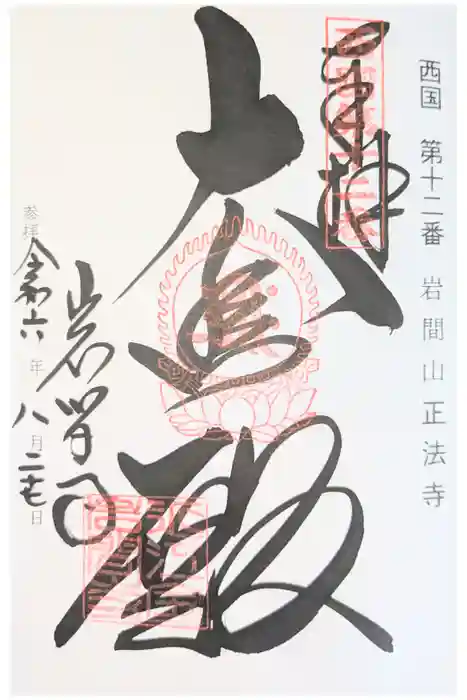 西国 第十二番 岩間山正法寺
奉拝
大悲殿
岩間寺
参拝 令和六年八月二十七日